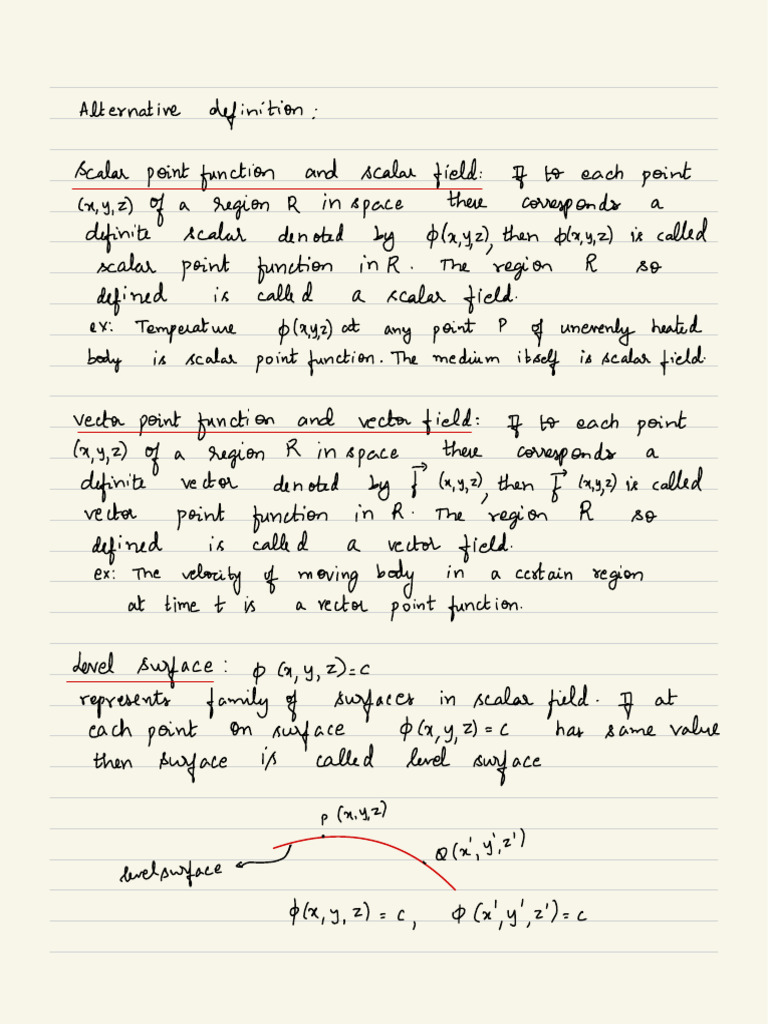 Alternative definition:
Scalar point function and scalar field: If to each point
(x,y,z) of a region R in space there corresponds a
definite scalar denoted by ϕ(x,y,z), then ϕ(x,y,z) is called
scalar point function in R. The region R so
defined is called a scalar field.
ex: Temperature ϕ(x,y,z) at any point P of unevenly heated
body is scalar point function. The medium itself is scalar field.
Vector point function and vector field: If to each point
(x,y,z) of a region R in space there corresponds a
definite vector denoted by f⃗ (x,y,z), then f⃗ (x,y,z) is called
vector point function in R. The region R so
defined is called a vector field.
ex: The velocity of moving body in a certain region
at time t is a vector point function.
Level surface: ϕ (x,y,z)=c
represents family of surfaces in scalar field. If at
each point on surface ϕ(x,y,z)=c has same value
then surface is called level surface
P (x,y,z)
Q(x',y',z')
level surface
ϕ(x,y,z)=c, ϕ(x',y',z')=c